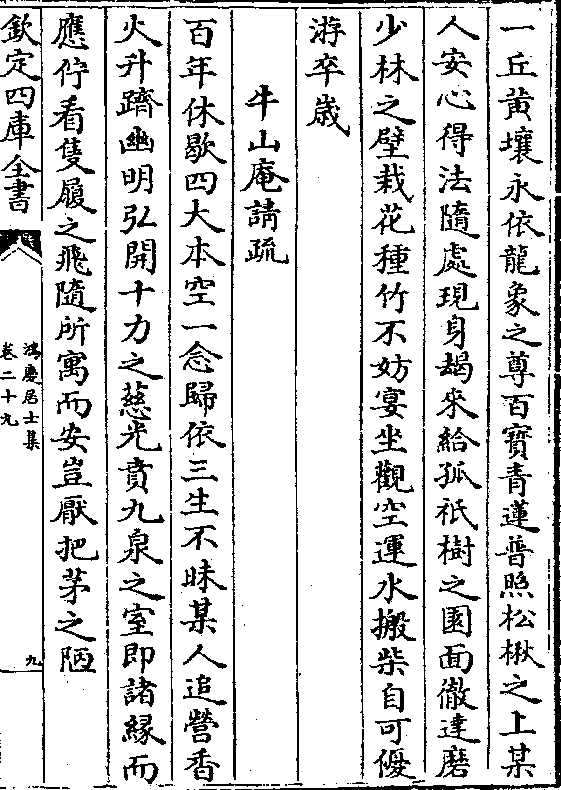 一丘黄壤永依龍象之尊百寳青蓮普照松楸之上某
人安心得法隨處現身朅来給孤祇樹之園面徹達磨
少林之壁栽花種竹不妨宴坐觀空運水搬柴自可優
游卒歳
牛山庵請疏
百年休歇四大本空一念歸依三生不昧某人追營香
火升躋幽明弘開十力之慈光賁九泉之室即諸縁而
應佇看隻履之飛隨所寓而安豈厭把茅之陋
欽定四庫全書
鴻慶居士集
卷二十九
九